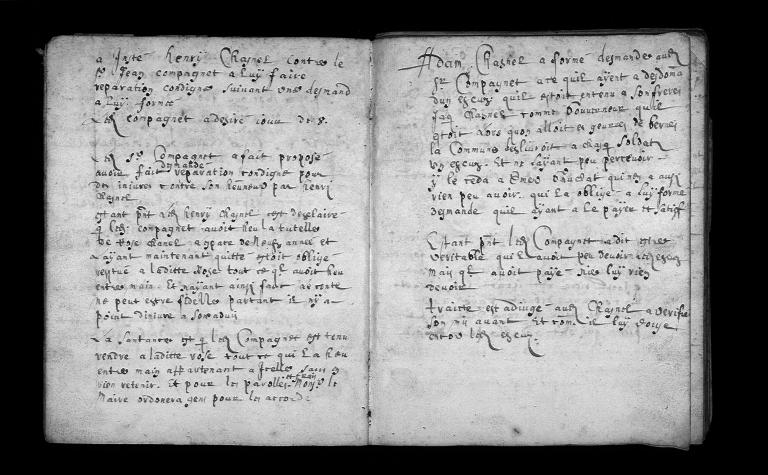 a Insté henry Chasnel contre le
sr Jean compagnet a luy faire
reparation condigne suivant une desmand
a luy formee
Led compagnet adesire iour de 8.
Led sr Compagnet a fait proposé
demande
avoir fait reparation condigne pour
des iniures contre son honneur par henri
Chasnel
estant pnt led henry Chasnel est desclaire
q led compagnet avoit heu la tutelle
de Rose Chanel a space de neuf annes et
ayant maintenant quitte estoit oblige
a laditte Rose tout ce ql avoit heu
entre main. Et nayant ainsi faict
ne peut estre fidelle partant il ny a
point diniure a
La Santance est q led Compagnet est tenu
rendre a laditte rose tout ce qui l a heu
entre main appartenant a Icelle sans
rien retenir. Et pour les parolles Monsr le
Maire ordonera gens pour les accorde
Adam Chasnel a formé desmande aud
sr Compagnet a ce quil ayent a
dun escuz quil estoit entenu a son frere
Chasnel comme gouverneur
estoit lors quon alloit es guerres de berne
la Commune deslivroit a chaq soldat
un escuz. Et ne layant peu percevoir
il le ceda a a aus
rien peu avoir. qui la oblige a luy forme
demande quil ayant a le payer et satisf
Estant pnt led Compagnet a dit estre
veritable quil avoit peu devoir escuz
mais ql avoit paye luy rien
devoir
traitte est adiugé aud Chasnel a verifie
son mis avant Et comme il luy doige
led escuz.